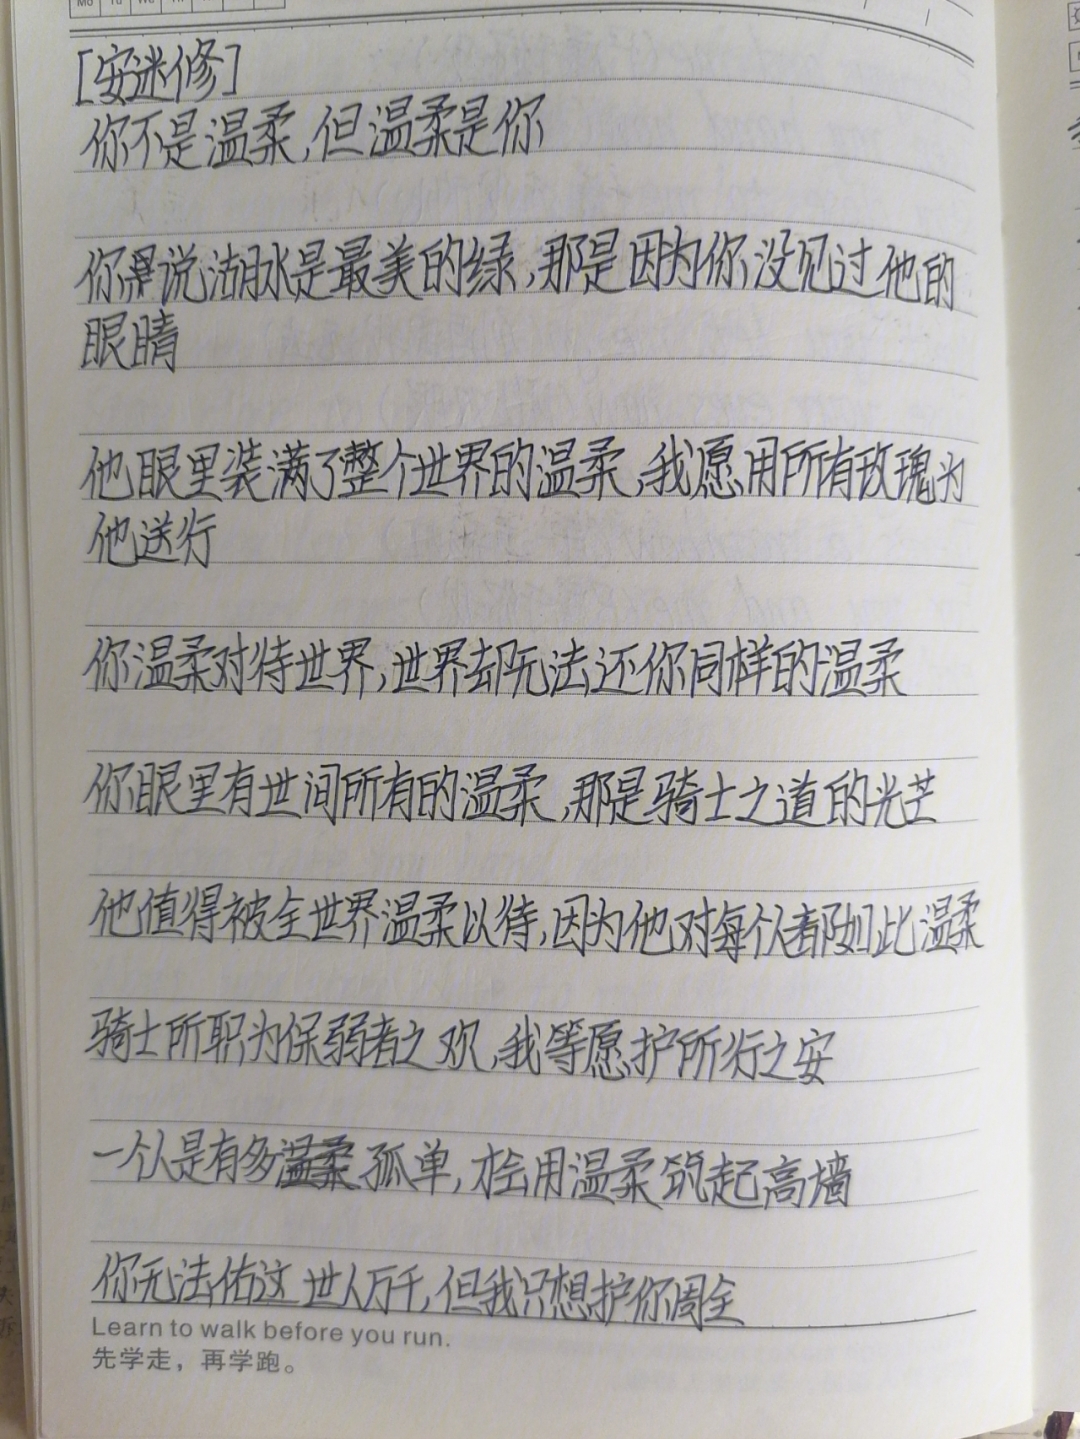 Mo Tu We Th
[安迷修]
你不是温柔,但温柔是你
你说湖水是最美的绿,那是因为你没见过他的
眼睛
他眼里装满了整个世界的温柔,我愿用所有玫瑰为
他送行
你温柔对待世界,世界却无法还你同样的温柔
你眼里有世间所有的温柔,那是骑士之道的光芒
他值得被全世界温柔以待,因为他对每个人都如此温柔
骑士所职为保弱者之欢,我等愿护所行之安
一个人是有多孤单,才会用温柔筑起高墙
你无法佑这世人万千,但我只想护你周全
Learn to walk before you run.
先学走，再学跑。